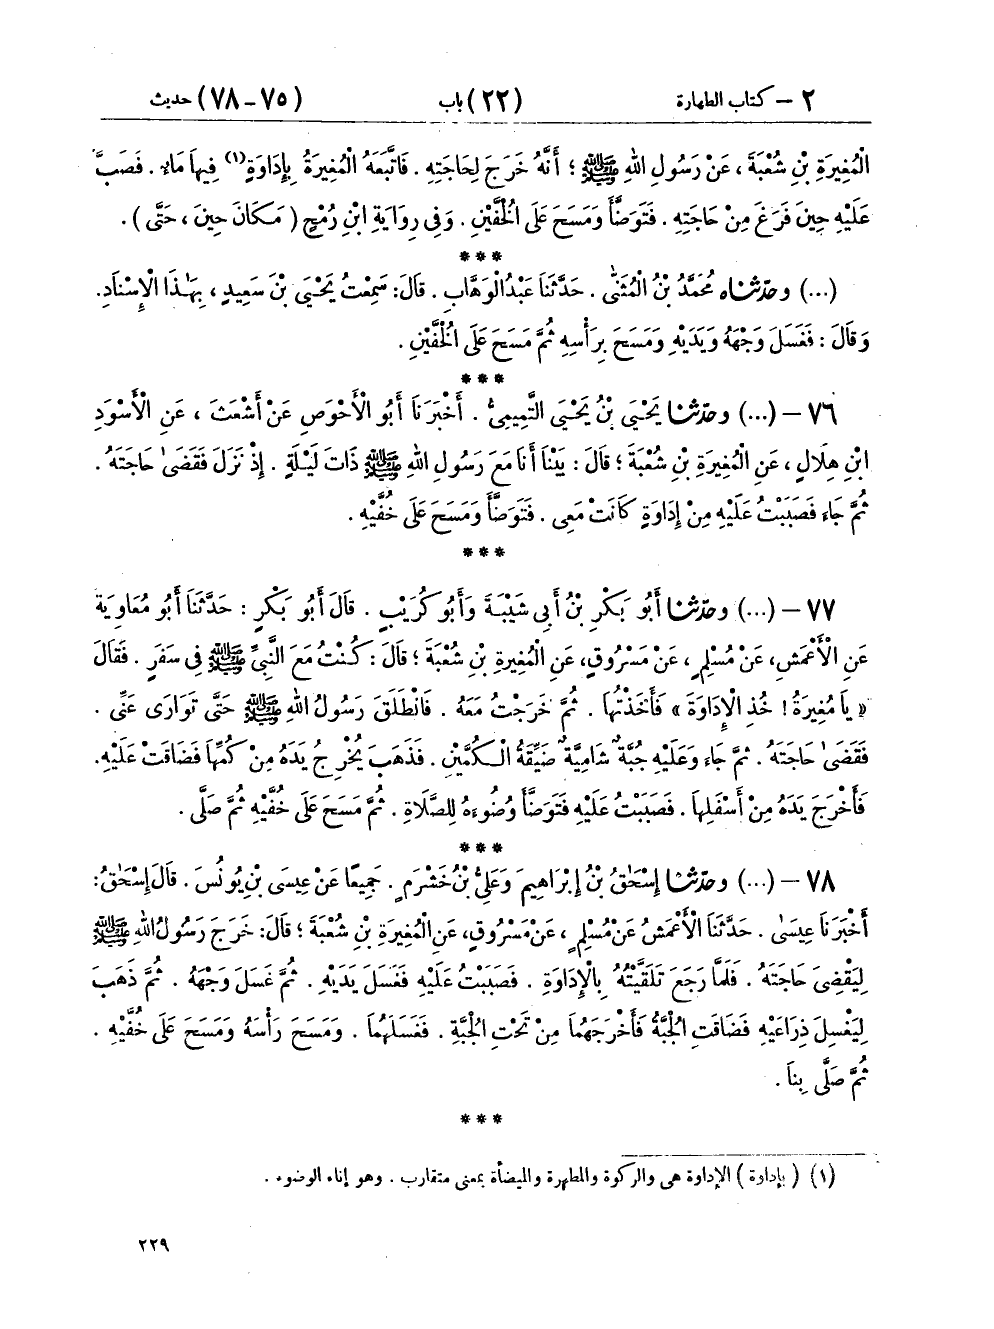 ٢ – كتاب الطهارة (٢٢) باب (٧٥–٧٨) حديث
الْمُغِيرَةِ بْنِ شُعْبَةَ، عَنْ رَسُولِ اللهِ ﷺ؛ أَنَّهُ خَرَجَ لِحَاجَتِهِ. فَاتَّبَعَهُ الْمُغِيرَةُ بِإِدَاوَةٍ(١) فِيهَا مَاءٌ. فَصَبَّ
عَلَيْهِ حِينَ فَرَغَ مِنْ حَاجَتِهِ. فَتَوَضَّأَ وَمَسَحَ عَلَى الْخُفَّيْنِ. وَفِي رِوَايَةِ ابْنِ رُمْحٍ (مَكَانَ حِينَ، حَتَّى).
***
(...) وحدّثناه مُحَمَّدُ بْنُ الْمُثَنَّى. حَدَّثَنَا عَبْدُ الْوَهَّابِ. قَالَ: سَمِعْتُ يَحْيَى بْنَ سَعِيدٍ، بِهَذَا الْإِسْنَادِ.
وَقَالَ: فَغَسَلَ وَجْهَهُ وَيَدَيْهِ وَمَسَحَ بِرَأْسِهِ ثُمَّ مَسَحَ عَلَى الْخُفَّيْنِ.
***
٧٦ – (...) وحدّثنا يَحْيَى بْنُ يَحْيَى التَّمِيمِيُّ. أَخْبَرَنَا أَبُو الْأَحْوَصِ عَنْ أَشْعَثَ، عَنِ الْأَسْوَدِ
ابْنِ هِلَالٍ، عَنِ الْمُغِيرَةِ بْنِ شُعْبَةَ؛ قَالَ: بَيْنَا أَنَا مَعَ رَسُولِ اللهِ ﷺ ذَاتَ لَيْلَةٍ. إِذْ نَزَلَ فَقَضَى حَاجَتَهُ.
ثُمَّ جَاءَ فَصَبَبْتُ عَلَيْهِ مِنْ إِدَاوَةٍ كَانَتْ مَعِي. فَتَوَضَّأَ وَمَسَحَ عَلَى خُفَّيْهِ.
***
٧٧ – (...) وحدّثنا أَبُو بَكْرِ بْنُ أَبِي شَيْبَةَ وَأَبُو كُرَيْبٍ. قَالَ أَبُو بَكْرٍ: حَدَّثَنَا أَبُو مُعَاوِيَةَ
عَنِ الْأَعْمَشِ، عَنْ مُسْلِمٍ، عَنْ مَسْرُوقٍ، عَنِ الْمُغِيرَةِ بْنِ شُعْبَةَ؛ قَالَ: كُنْتُ مَعَ النَّبِيِّ ﷺ فِي سَفَرٍ. فَقَالَ
«يَا مُغِيرَةُ! خُذِ الْإِدَاوَةَ» فَأَخَذْتُهَا. ثُمَّ خَرَجْتُ مَعَهُ. فَانْطَلَقَ رَسُولُ اللهِ ﷺ حَتَّى تَوَارَى عَنِّي.
فَقَضَى حَاجَتَهُ. ثُمَّ جَاءَ وَعَلَيْهِ جُبَّةٌ شَامِيَّةٌ ضَيِّقَةُ الْكُمَّيْنِ. فَذَهَبَ يُخْرِجُ يَدَهُ مِنْ كُمِّهَا فَضَاقَتْ عَلَيْهِ.
فَأَخْرَجَ يَدَهُ مِنْ أَسْفَلِهَا. فَصَبَبْتُ عَلَيْهِ فَتَوَضَّأَ وُضُوءَهُ لِلصَّلَاةِ. ثُمَّ مَسَحَ عَلَى خُفَّيْهِ ثُمَّ صَلَّى.
***
٧٨ – (...) وحدّثنا إِسْحَقُ بْنُ إِبْرَاهِيمَ وَعَلِيُّ بْنُ خَشْرَمٍ. جَمِيعًا عَنْ عِيسَى بْنِ يُونُسَ. قَالَ إِسْحَقُ:
أَخْبَرَنَا عِيسَى. حَدَّثَنَا الْأَعْمَشُ عَنْ مُسْلِمٍ، عَنْ مَسْرُوقٍ، عَنِ الْمُغِيرَةِ بْنِ شُعْبَةَ؛ قَالَ: خَرَجَ رَسُولُ اللهِ ﷺ
لِيَقْضِيَ حَاجَتَهُ. فَلَمَّا رَجَعَ تَلَقَّيْتُهُ بِالْإِدَاوَةِ. فَصَبَبْتُ عَلَيْهِ فَغَسَلَ يَدَيْهِ. ثُمَّ غَسَلَ وَجْهَهُ. ثُمَّ ذَهَبَ
لِيَغْسِلَ ذِرَاعَيْهِ فَضَاقَتِ الْجُبَّةُ فَأَخْرَجَهُمَا مِنْ تَحْتِ الْجُبَّةِ. فَغَسَلَهُمَا. وَمَسَحَ رَأْسَهُ وَمَسَحَ عَلَى خُفَّيْهِ.
ثُمَّ صَلَّى بِنَا.
***
(١) (بإداوة) الإداوة هى والركوة والمطهرة والميضأة بمعنى متقارب. وهو إناء الوضوء.
٢٢٩